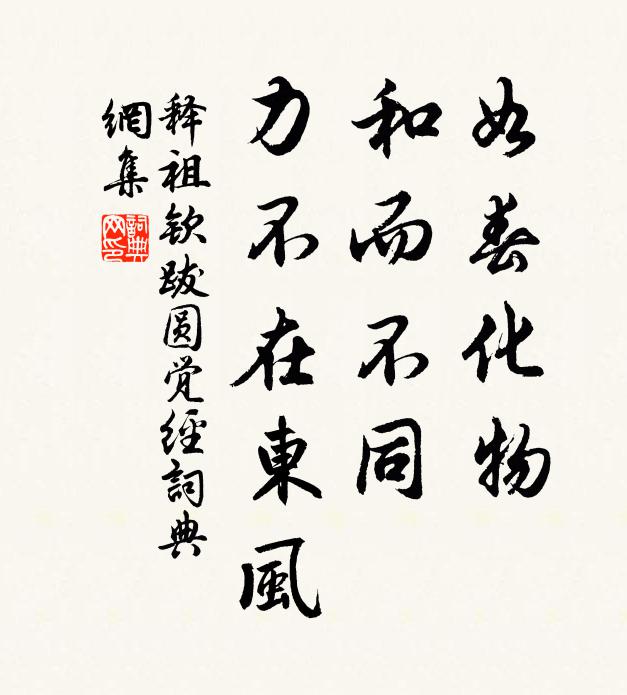 如春化物
和而不同
力不在東風
释祖钦跋圆觉經詞典
網集
詞典
网印